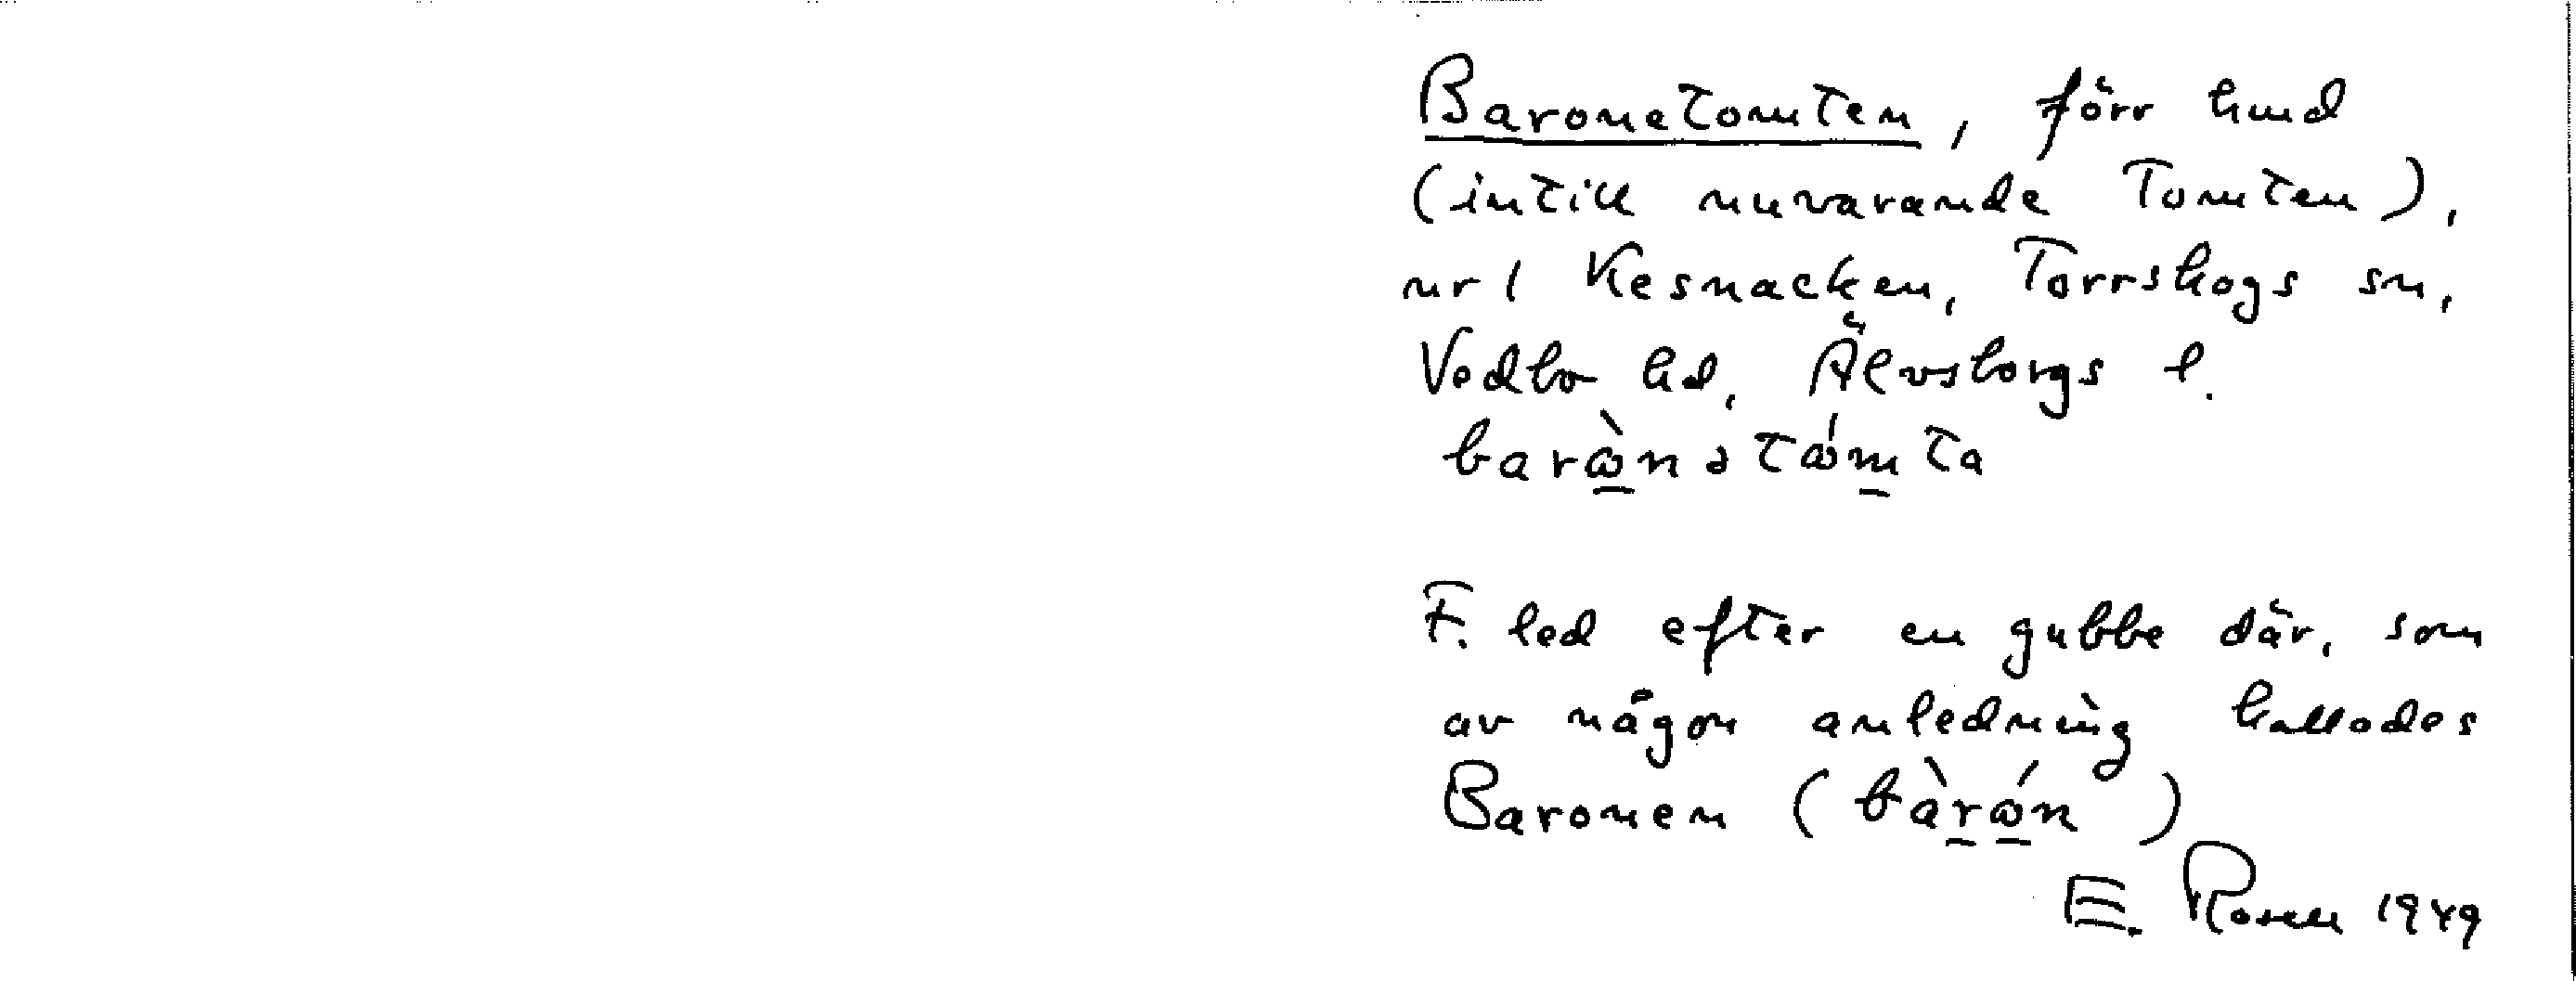 Baronetomten, förr hmd
(intill nuvarande Tomten),
nr 1 Kesnacken, Torrskogs sn,
Vedbo hd, Älvsborgs l.
barὼnətώmta
F. led efter en gubbe där, som
av någon anledning kallades
Baronen (bàrώn)
E. Rosell 1949